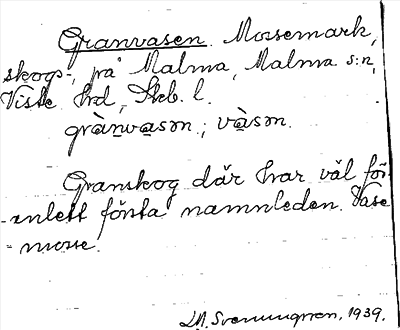 Granvasen. Mossemark,
skogs-, på Malma, Malma s:n,
Viste hrd, Skb. l.
grànvasən ; vàsən.
Granskog där. Har väl för-
enlett första namnleden. Vase
= mosse.
1939.